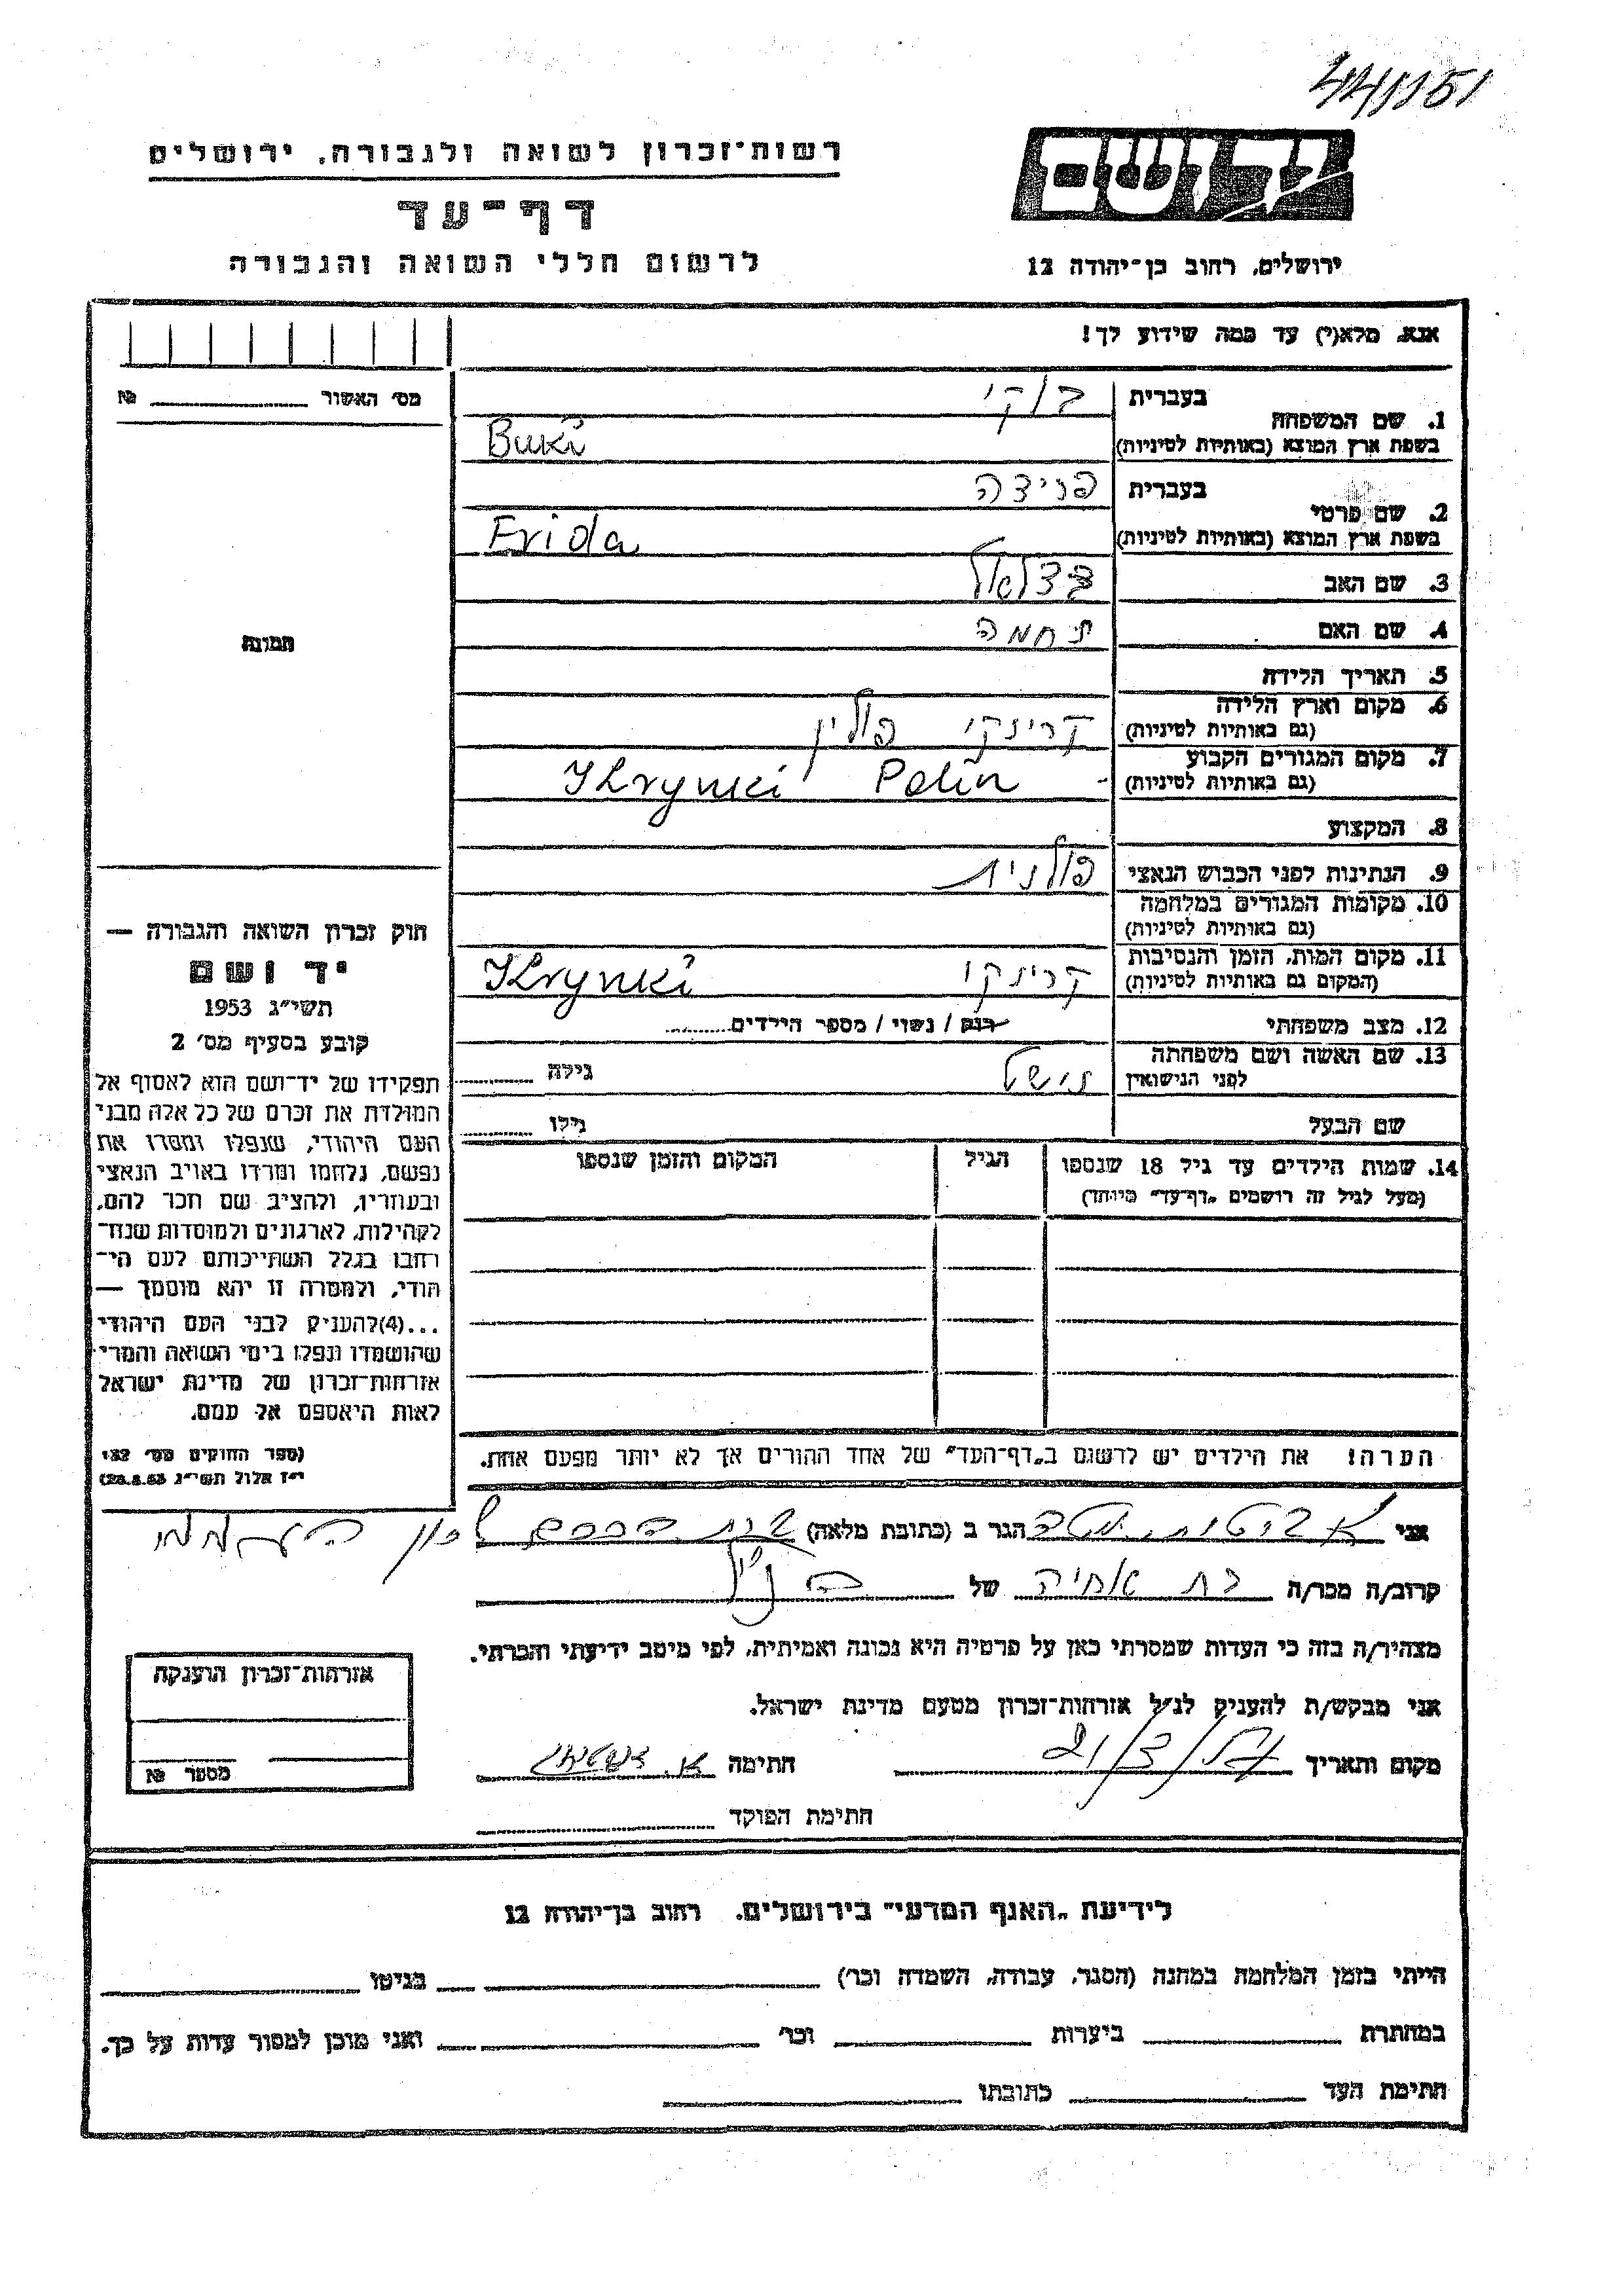 רשות-זכרון לשואה ולגבורה. ירושלים
דף-עד
לרשום חללי השואה והגבורה
יד ושם
ירושלים, רחוב בן-יהודה 12
אנא, מלא(י) עד כמה שידוע לך!
מס׳ האשור № 
1. שם המשפחה
בעברית בוקי
בשפת ארץ המוצא (באותיות לטיניות) Buki
2. שם פרטי
בעברית פרידה
בשפת ארץ המוצא (באותיות לטיניות) Frida
3. שם האב בצלאל
4. שם האם נחמה
5. תאריך הלידה
6. מקום וארץ הלידה (גם באותיות לטיניות) קרינקי פולין
7. מקום המגורים הקבוע (גם באותיות לטיניות) Krynki Polin
8. המקצוע
9. הנתינות לפני הכבוש הנאצי פולנית
10. מקומות המגורים במלחמה (גם באותיות לטיניות)
11. מקום המות, הזמן והנסיבות (המקום גם באותיות לטיניות) קרינקי Krynki
12. מצב משפחתי רווק / נשוי / מספר הילדים
13. שם האשה ושם משפחתה לפני הנישואין גילה
שם הבעל גילו
14. שמות הילדים עד גיל 18 שנספו הגיל המקום והזמן שנספו
(מעל לגיל זה רושמים „דף-עד״ מיוחד)
הערה! את הילדים יש לרשום ב„דף-העד״ של אחד ההורים אך לא יותר מפעם אחת.
תמונה
חוק זכרון השואה והגבורה —
יד ושם
תשי״ג 1953
קובע בסעיף מס׳ 2
תפקידו של יד-ושם הוא לאסוף אל
המולדת את זכרם של כל אלה מבני
העם היהודי, שנפלו ומסרו את
נפשם, נלחמו ומרדו באויב הנאצי
ובעוזריו, ולהציב שם וזכר להם,
לקהילות, לארגונים ולמוסדות שנח-
רבו בגלל השתייכותם לעם הי-
הודי, ולמטרה זו יהא מוסמך —
...(4)להעניק לבני העם היהודי
שהושמדו ונפלו בימי השואה והמרי
אזרחות-זכרון של מדינת ישראל
לאות היאספם אל עמם.
(ספר החוקים מס׳ 132
י״ז אלול תשי״ג 28.8.53)
אני הגר ב (כתובת מלאה)
קרוב/ה מכר/ה בת אחיה של הנ״ל
מצהיר/ה בזה כי העדות שמסרתי כאן על פרטיה היא נכונה ואמיתית, לפי מיטב ידיעתי והכרתי.
אני מבקש/ת להעניק לנ״ל אזרחות-זכרון מטעם מדינת ישראל.
מקום ותאריך חתימה
חתימת הפוקד
אזרחות-זכרון הוענקה
מספר №
לידיעת „האגף המדעי״ בירושלים. רחוב בן-יהודה 12
הייתי בזמן המלחמה במחנה (הסגר, עבודה, השמדה וכו׳) בגיטו
במחתרת ביערות וכו׳ ואני מוכן למסור עדות על כך.
חתימת העד כתובתו